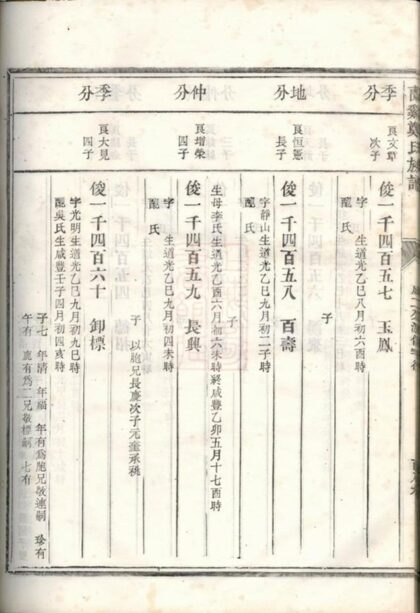 氏族譜
季分
良文章
次子
俊一千四百五七 玉鳳
子
字 生道光乙巳八月初六巳時
配 氏
地分
良恒憲
長子
俊一千四百五八 百壽
子
字靜山生道光乙巳九月初二子時
配 氏
仲分
良增榮
四子
生母李氏生道光乙酉六月初六未時終咸豐乙卯五月十七酉時
俊一千四百五九 長興
子 以胞兄長慶次子元奎承祧
字 生道光乙巳九月初四未時
配 氏
季分
良大見
四子
俊一千四百六十 卸標
字光明生道光乙巳九月初九巳時
配吳氏生咸豐壬子四月初四亥時
子七 年清 年福 年有為胞兄敬連嗣 珍有
午有 慶有為二兄敬標嗣 七有